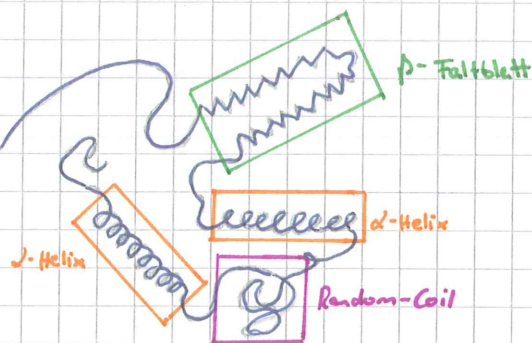 β-Faltblatt
α-Helix
α-Helix
Random-Coil